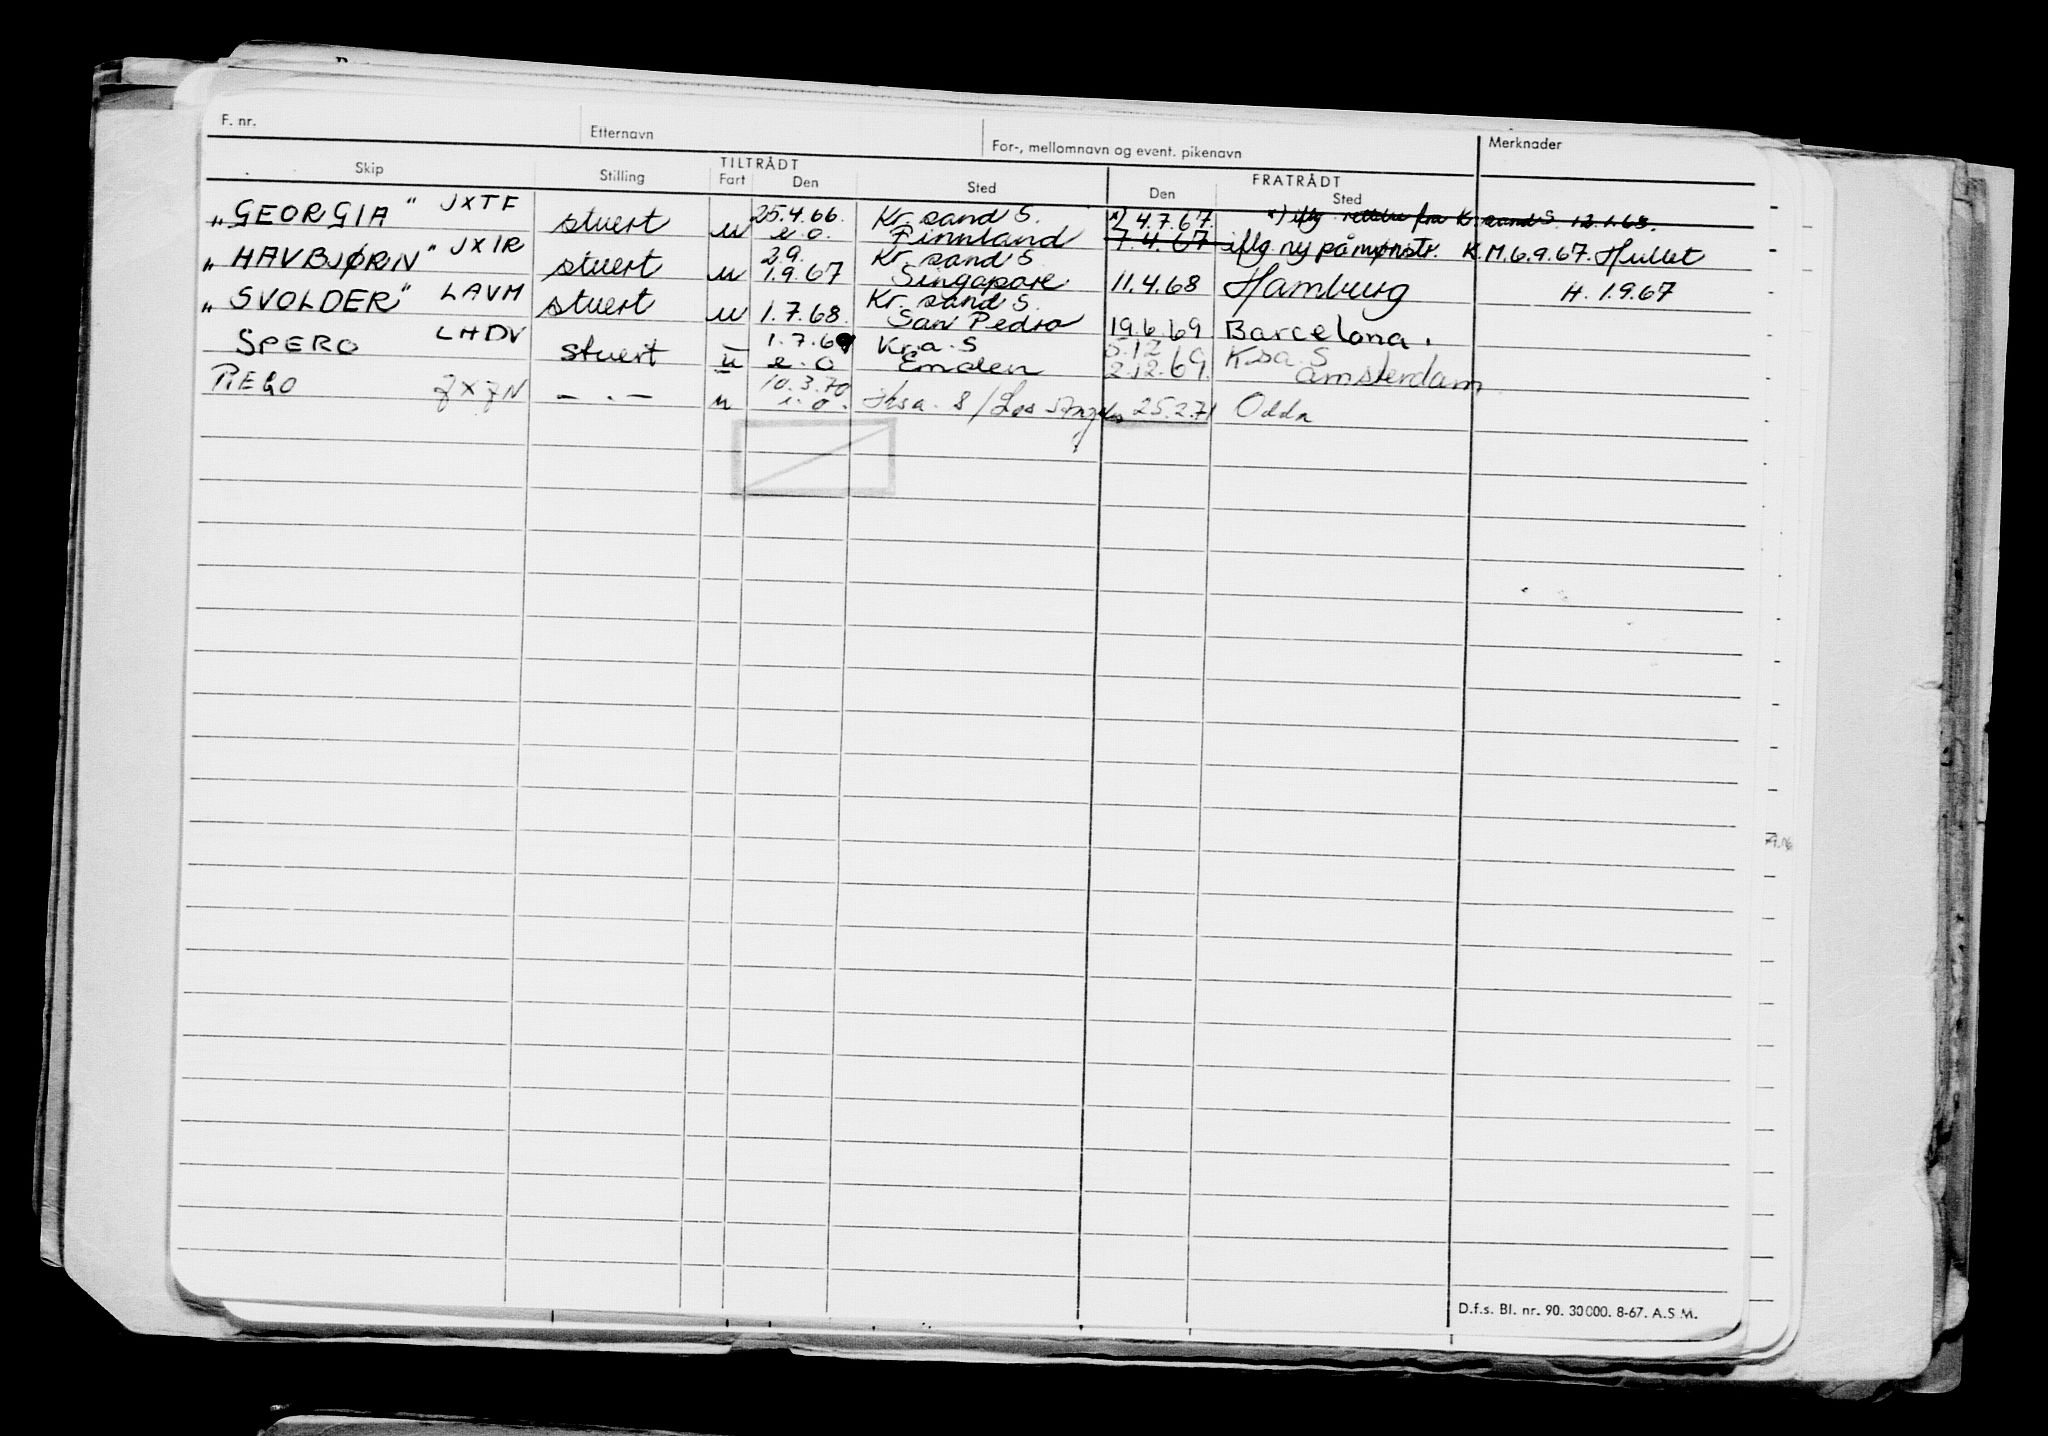 F. nr. Etternavn For-, mellomnavn og event. pikenavn Merknader
Skip Stilling TILTRÅDT Fart Den Sted FRATRÅDT Den Sted
„GEORGIA" JXTF stuert u 25.4.66. e.o. Kr.sand S. Finnland x) 4.7.67. 7.4.67 x) iflg. rettelse fra Kr.sand S. 12.1.68.
iflg. ny påmønstr. K.M. 6.9.67. Hullet
„HAVBJØRN" JXIR stuert u 29. 1.9.67 Kr.sand S Singapore 11.4.68 Hamburg H. 1.9.67
„SVOLDER" LAVM stuert u 1.7.68. Kr.sand S. San Pedro 19.6.69 Barcelona.
SPERO LHDV stuert u 1.7.69 e.o Kr.a.S Emden 5.12 2.12.69. Ksa. S Amsterdam
REGO JXJN — . — u 10.3.70 e.o. Ksa. S / Los Angeles 25.2.71 Odda
D.f.s. Bl. nr. 90. 30000. 8-67. A.S.M.